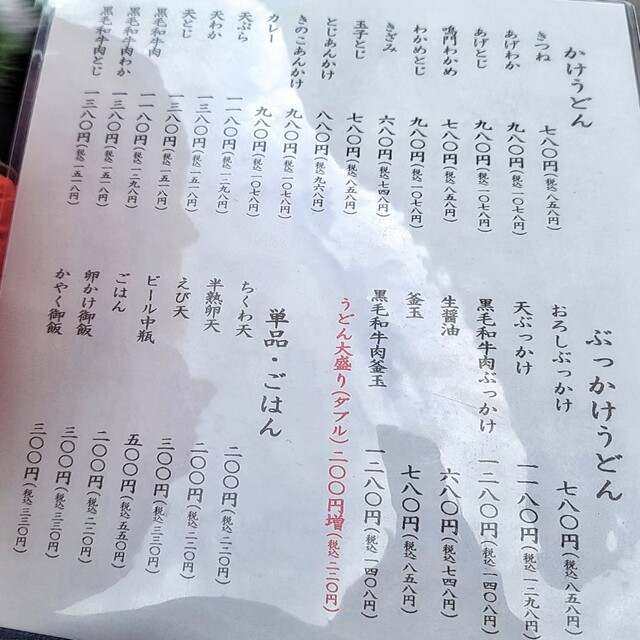 かけうどん
きつね 七八〇円(税込八五八円)
あげわか 九八〇円(税込一〇七八円)
あげとじ 九八〇円(税込一〇七八円)
鳴門わかめ 七八〇円(税込八五八円)
わかめとじ 九八〇円(税込一〇七八円)
きざみ 六八〇円(税込七四八円)
玉子とじ 七八〇円(税込八五八円)
とじあんかけ 八八〇円(税込九六八円)
きのこあんかけ 九八〇円(税込一〇七八円)
カレー 九八〇円(税込一〇七八円)
天ぷら 一一八〇円(税込一二九八円)
天わか 一三八〇円(税込一五一八円)
天とじ 一三八〇円(税込一五一八円)
黒毛和牛肉 一一八〇円(税込一二九八円)
黒毛和牛肉わか 一三八〇円(税込一五一八円)
黒毛和牛肉とじ 一三八〇円(税込一五一八円)
ぶっかけうどん
おろしぶっかけ 七八〇円(税込八五八円)
天ぶっかけ 一一八〇円(税込一二九八円)
黒毛和牛肉ぶっかけ 一二八〇円(税込一四〇八円)
生醤油 六八〇円(税込七四八円)
釜玉 七八〇円(税込八五八円)
黒毛和牛肉釜玉 一二八〇円(税込一四〇八円)
うどん大盛り(ダブル)二〇〇円増(税込二二〇円)
単品・ごはん
ちくわ天 二〇〇円(税込二二〇円)
半熟卵天 二〇〇円(税込二二〇円)
えび天 三〇〇円(税込三三〇円)
ビール中瓶 五〇〇円(税込五五〇円)
ごはん 二〇〇円(税込二二〇円)
卵かけ御飯 三〇〇円(税込三三〇円)
かやく御飯 三〇〇円(税込三三〇円)